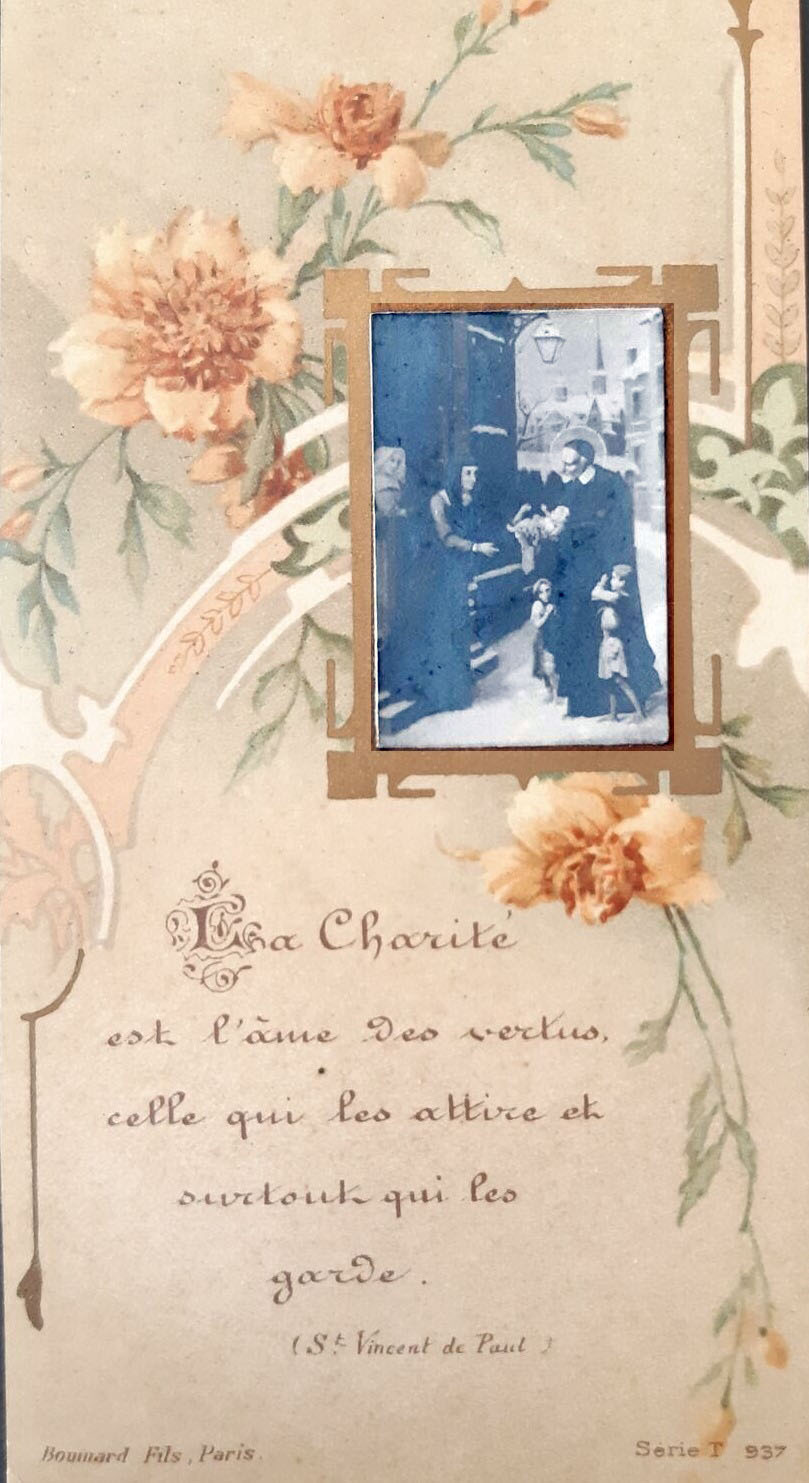 La Charité
est l'âme des vertus,
celle qui les attire et
surtout qui les
garde.
(St Vincent de Paul)
Boumard Fils, Paris.
Série T 937